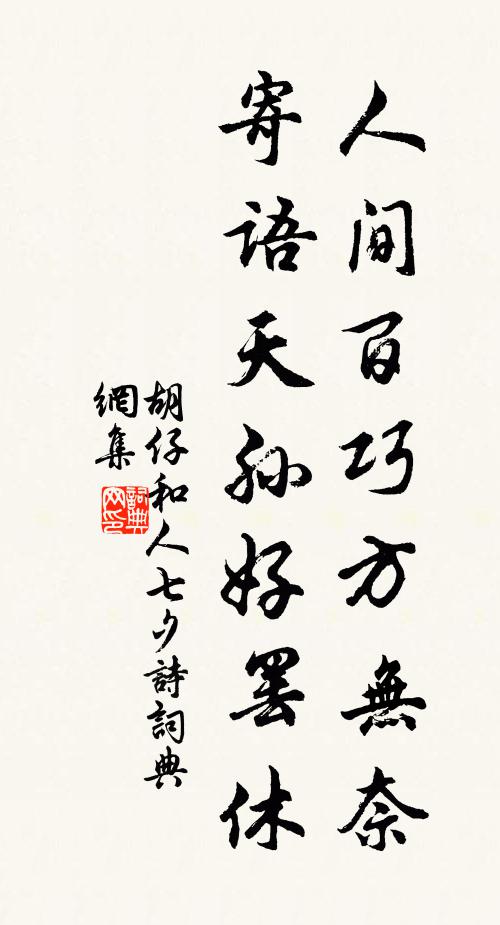 人间百巧方無奈
寄語天孫好罢休
胡仔和人七夕詩詞典
網集
詞典网印